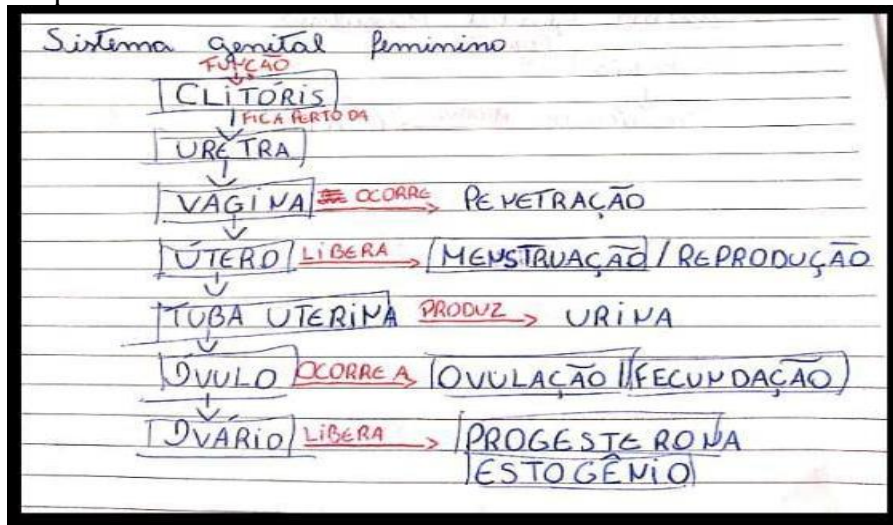 Sistema genital feminino
FUNÇÃO
CLITÓRIS
FICA PERTO DA
URETRA
VAGINA OCORRE PENETRAÇÃO
ÚTERO LIBERA MENSTRUAÇÃO / REPRODUÇÃO
TUBA UTERINA PRODUZ URINA
ÓVULO OCORRE A OVULAÇÃO / FECUNDAÇÃO
OVÁRIO LIBERA PROGESTERONA
ESTOGÊNIO